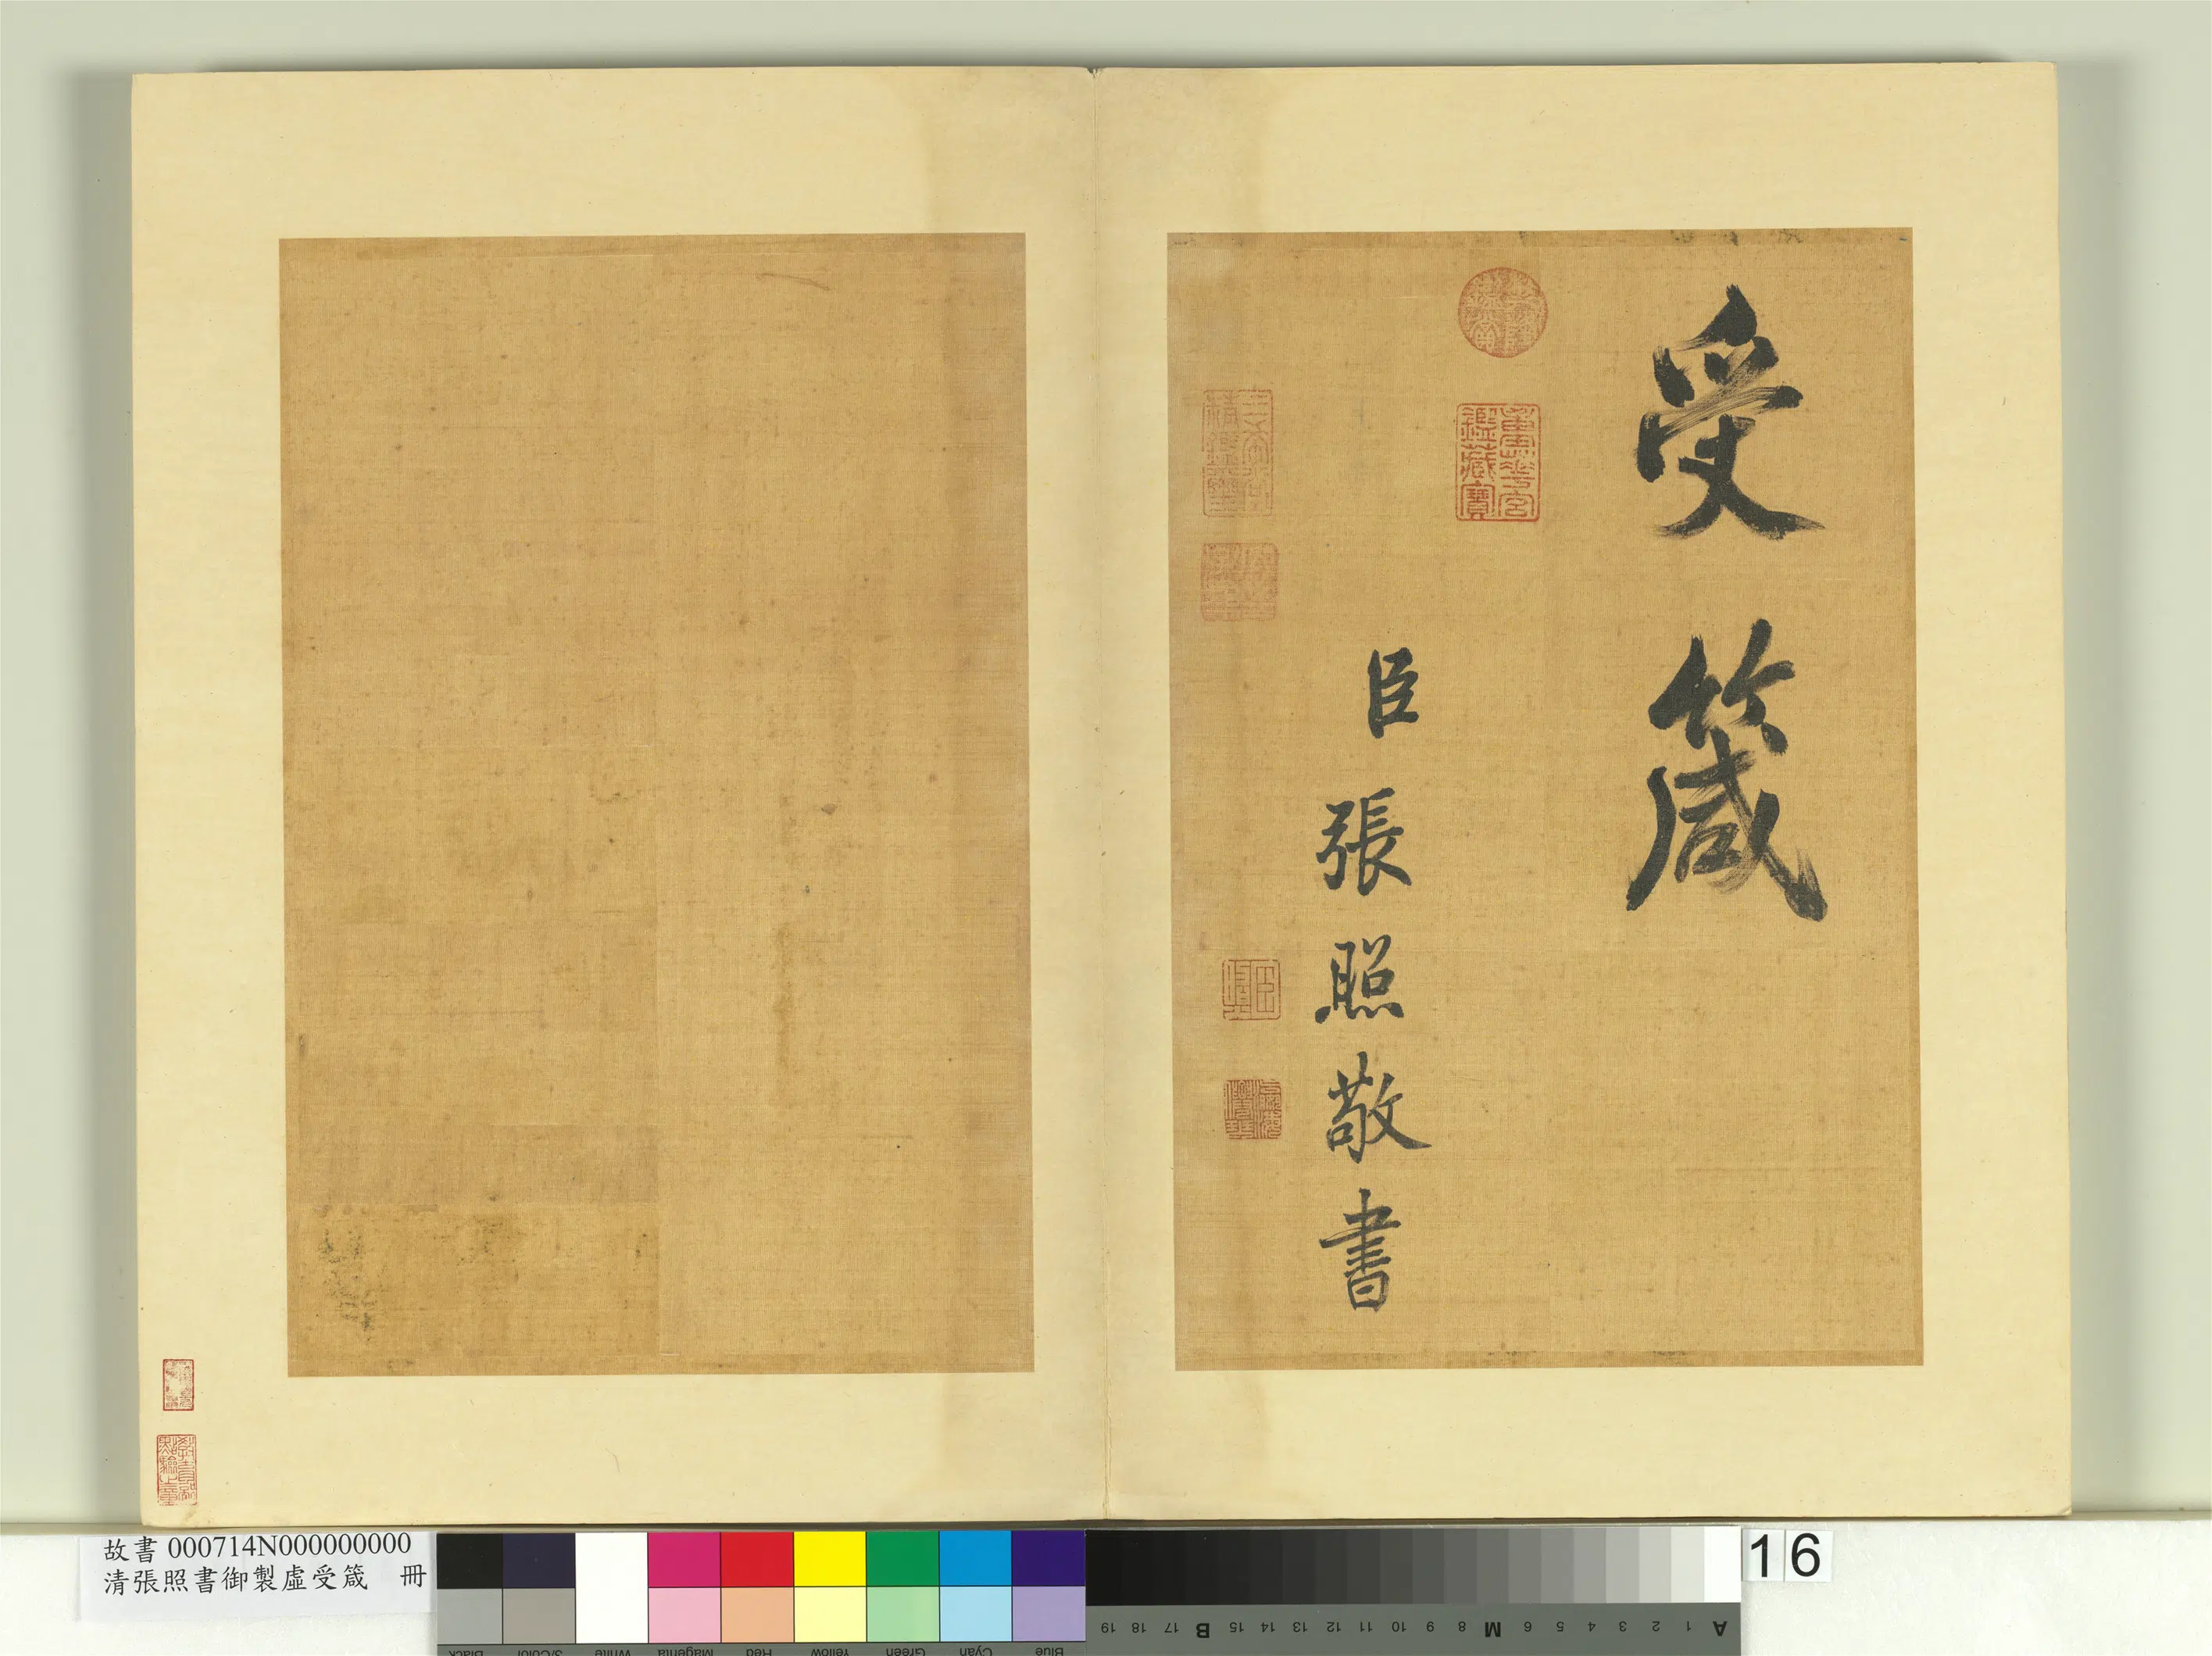 受箴
臣張照敬書
重華宮
鑑藏寶
故書 000714N000000000
清張照書御製虛受箴 冊
16
Black
3/Color
White
Magenta
Red
Yellow
Green
Cyan
Blue
A 1 2 3 4 5 6 M 8 9 10 11 12 13 14 15 B 17 18 19